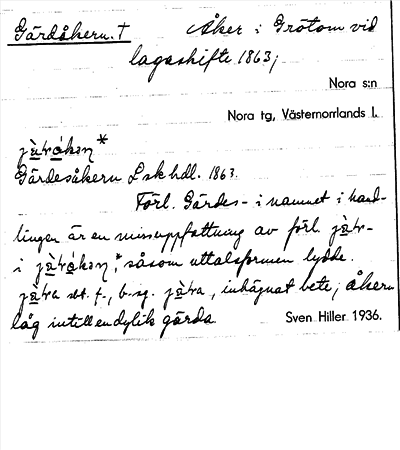 Gärdåkern. † Åker i Grötom vid
lagaskifte 1863;
Nora s:n
Nora tg, Västernorrlands l.
jàråkən*
Gärdesåkern Lsk hdl. 1863.
Förl. Gärdes- i namnet i hand-
lingen är en missuppfattning av förl. jàr-
i jàråkən,* såsom uttalsformen lydde.
jàra sbt. f., b. sg. jàra, inhägnat bete; Åkern
låg intill en dylik gärda.
Sven Hiller 1936.